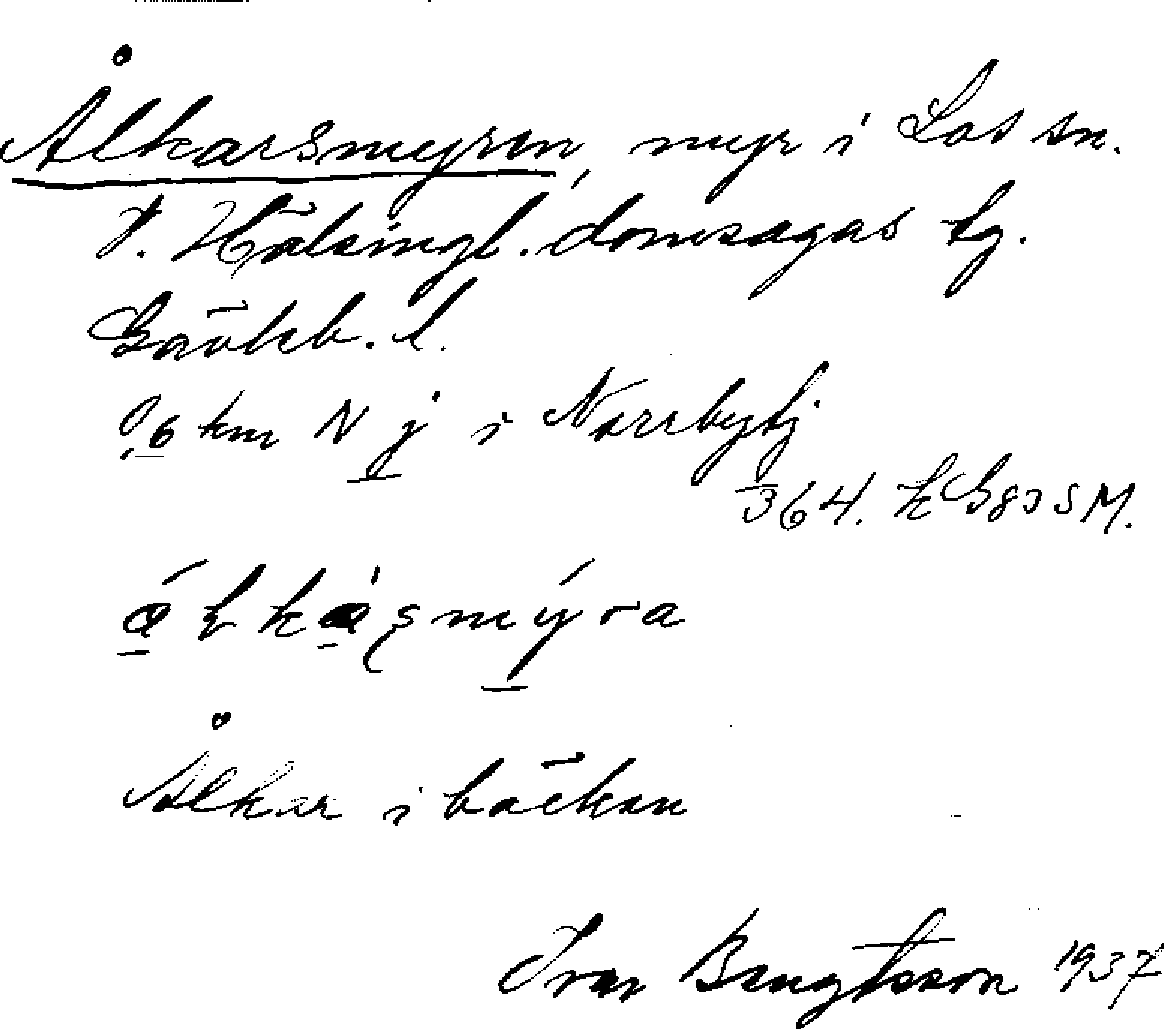 Ålkarsmyren, myr i Los sn.
V. Hälsingl. domsagas tg.
Gävleb. l.
0,6 km N j i Norrbytj
364.
ålkåsmýra
Ålkar i bäcken
Ivar Bengtsson 1937